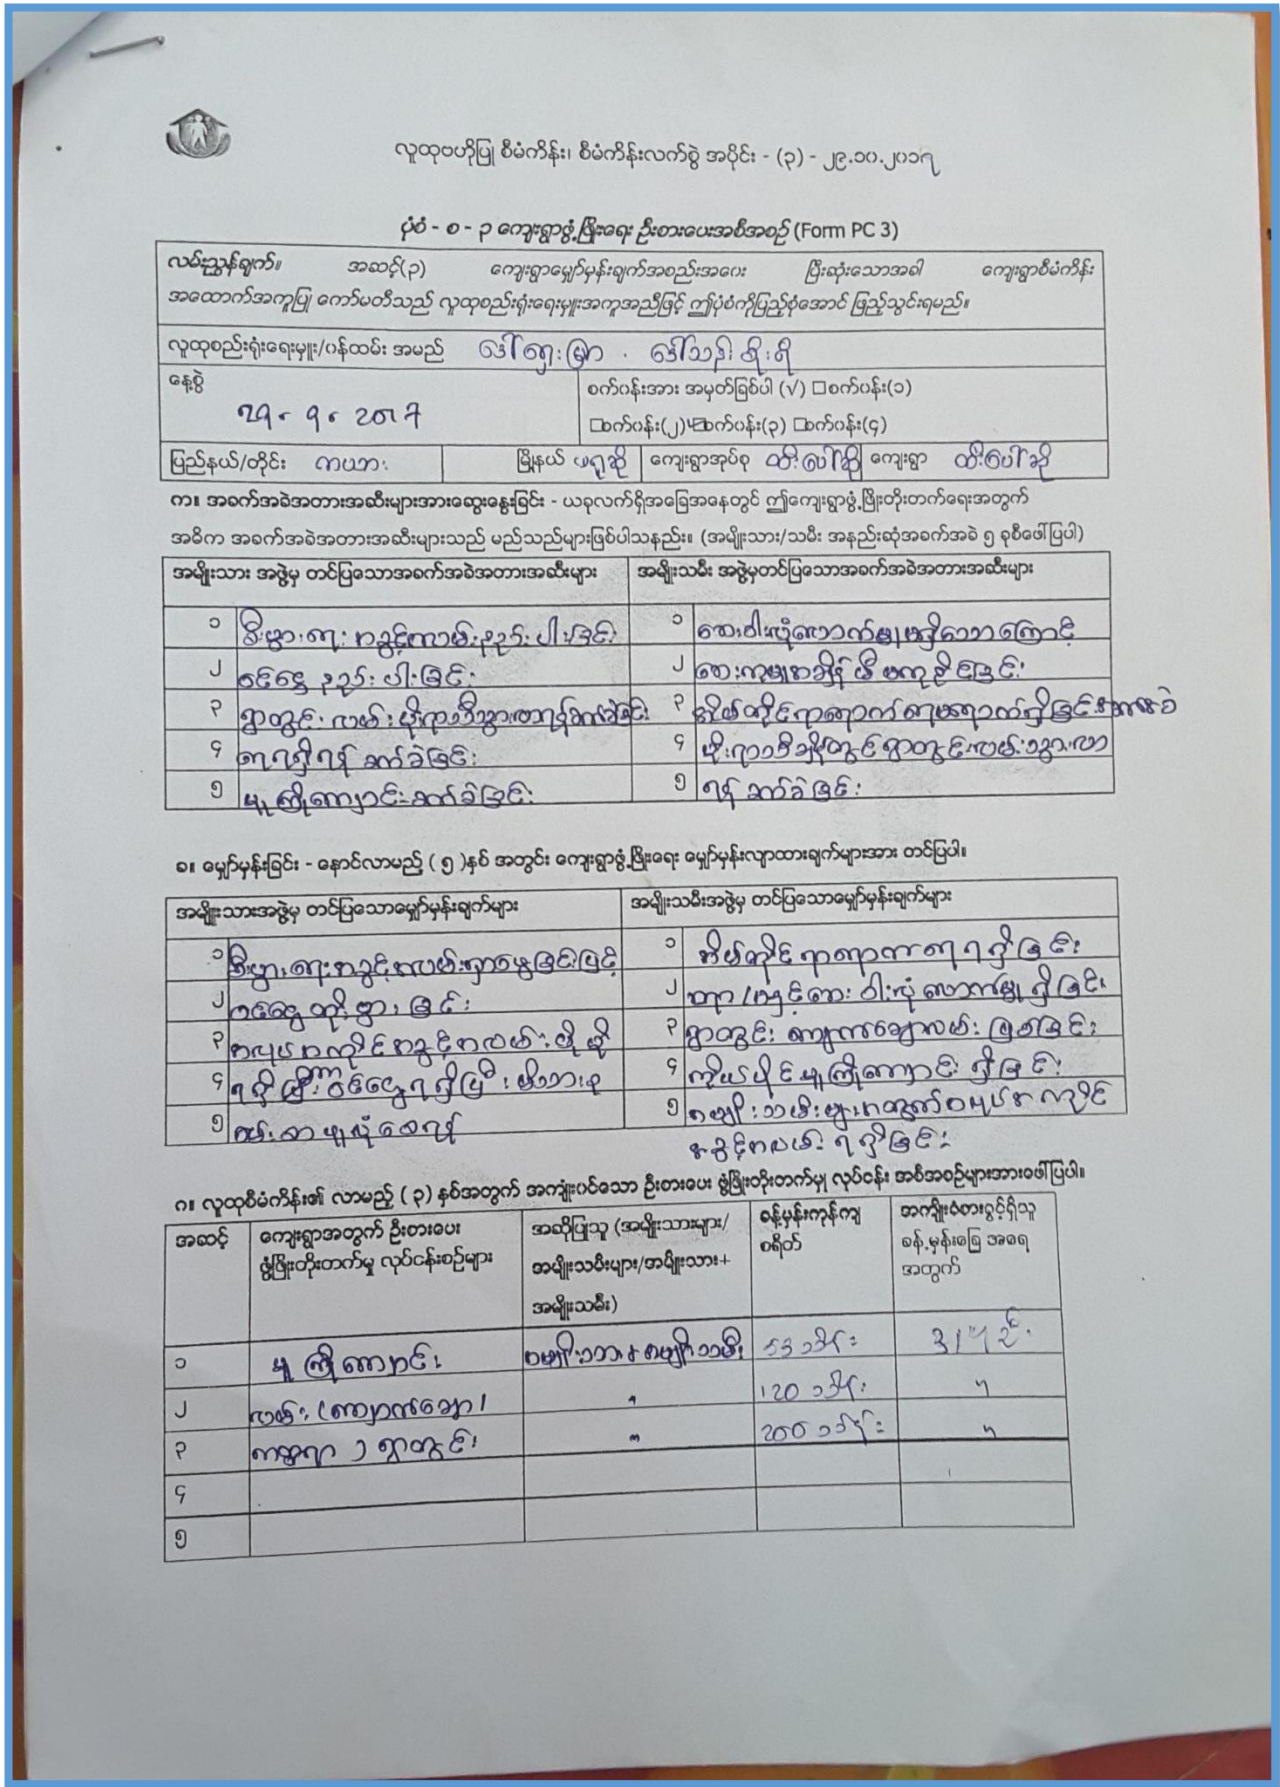 လူထုဗဟိုပြု စီမံကိန်း၊ စီမံကိန်းလက်စွဲ အပိုင်း - (၃) - ၂၉.၁၀.၂၀၁၇
ပုံစံ - စ - ၃ ကျေးရွာဖွံ့ဖြိုးရေး ဦးစားပေးအစီအစဉ် (Form PC 3)
လမ်းညွှန်ချက်။ အဆင့်(၃) ကျေးရွာမျှော်မှန်းချက်အစည်းအဝေး ပြီးဆုံးသောအခါ ကျေးရွာစီမံကိန်း
အထောက်အကူပြု ကော်မတီသည် လူထုစည်းရုံးရေးမှူးအကူအညီဖြင့် ဤပုံစံကိုပြည့်စုံအောင် ဖြည့်သွင်းရမည်။
လူထုစည်းရုံးရေးမှူး/ဝန်ထမ်း အမည်
နေ့စွဲ
စက်ဝန်းအား အမှတ်ခြစ်ပါ (√) □စက်ဝန်း(၁)
29. 9. 2017
□စက်ဝန်း(၂) ☑စက်ဝန်း(၃) □စက်ဝန်း(၄)
ပြည်နယ်/တိုင်း ကယား မြို့နယ် ဖရူဆို ကျေးရွာအုပ်စု ထီးပေါ်ဆို ကျေးရွာ ထီးပေါ်ဆို
က။ အခက်အခဲအတားအဆီးများအားဆွေးနွေးခြင်း - ယခုလက်ရှိအခြေအနေတွင် ဤကျေးရွာဖွံ့ဖြိုးတိုးတက်ရေးအတွက်
အဓိက အခက်အခဲအတားအဆီးများသည် မည်သည်များဖြစ်ပါသနည်း။ (အမျိုးသား/သမီး အနည်းဆုံးအခက်အခဲ ၅ ခုစီဖေါ်ပြပါ)
အမျိုးသား အဖွဲ့မှ တင်ပြသောအခက်အခဲအတားအဆီးများ အမျိုးသမီး အဖွဲ့မှတင်ပြသောအခက်အခဲအတားအဆီးများ
၁ စီးပွားရေး အခွင့်အလမ်းနည်းပါးခြင်း ၁ ဆေးဝါးလုံလောက်မှုမရှိသောကြောင့်
၂ ဝင်ငွေ နည်းပါးခြင်း ၂ ဆေးကုမှုအချိန်မီ မကုနိုင်ခြင်း
၃ ရွာတွင်းလမ်း မိုးရာသီသွားလာရန်ခက်ခဲခြင်း ၃ အိမ်တိုင်ရာရောက်ရေမရောက်ရှိခြင်း
၄ ရေရရှိရန် ခက်ခဲခြင်း ၄ မိုးရာသီချိန်တွင်ရွာတွင်းလမ်းသွားလာ
၅ မူကြိုကျောင်းခက်ခဲခြင်း ၅ ရန် ခက်ခဲခြင်း
ခ။ မျှော်မှန်းခြင်း - နောင်လာမည့် ( ၅ )နှစ် အတွင်း ကျေးရွာဖွံ့ဖြိုးရေး မျှော်မှန်းလျာထားချက်များအား တင်ပြပါ။
အမျိုးသားအဖွဲ့မှ တင်ပြသောမျှော်မှန်းချက်များ အမျိုးသမီးအဖွဲ့မှ တင်ပြသောမျှော်မှန်းချက်များ
၁ စီးပွားရေးအခွင့်အလမ်းရှာဖွေခြင်းဖြင့် ၁ အိမ်တိုင်ရာရောက်ရေရရှိခြင်း
၂ ဝင်ငွေတိုးပွားခြင်း ၂ ဆေးဝါးလုံလောက်မှုရှိခြင်း
၃ အလုပ်အကိုင်အခွင့်အလမ်း ပိုမို ၃ ရွာတွင်း ကျောက်ချောလမ်း ဖြစ်ခြင်း
၄ ရရှိပြီး ဝင်ငွေရရှိပြီး မိသားစု ၄ ကိုယ်ပိုင်မူကြိုကျောင်း ရှိခြင်း
၅ ၅ အမျိုးသမီးများအတွက်အလုပ်အကိုင်
အခွင့်အလမ်း ရရှိခြင်း
ဂ။ လူထုစီမံကိန်း၏ လာမည့် ( ၃ ) နှစ်အတွက် အကျုံးဝင်သော ဦးစားပေး ဖွံ့ဖြိုးတိုးတက်မှု လုပ်ငန်း အစီအစဉ်များအားဖေါ်ပြပါ။
အဆင့် ကျေးရွာအတွက် ဦးစားပေး ဖွံ့ဖြိုးတိုးတက်မှု လုပ်ငန်းစဉ်များ အဆိုပြုသူ (အမျိုးသားများ/ အမျိုးသမီးများ/အမျိုးသား+ အမျိုးသမီး) ခန့်မှန်းကုန်ကျ စရိတ် အကျိုးခံစားခွင့်ရှိသူ ခန့်မှန်းခြေ အရေ အတွက်
၁ မူကြိုကျောင်း အမျိုးသား + အမျိုးသမီး
၂ လမ်း (ကျောက်ချော) " 120 သိန်း "
၃ " 200 သိန်း "
၄
၅